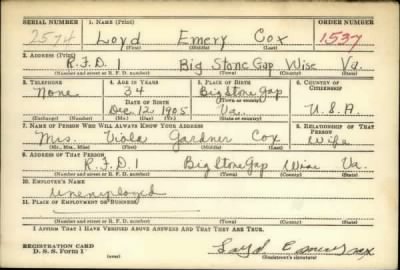 SERIAL NUMBER 1. NAME (Print) ORDER NUMBER
2574 Loyd Emery Cox 1537
(First) (Middle) (Last)
2. ADDRESS (Print)
R.F.D 1 Big Stone Gap Wise Va.
(Number and street or R. F. D. number) (Town) (County) (State)
3. TELEPHONE 4. AGE IN YEARS 5. PLACE OF BIRTH 6. COUNTRY OF CITIZENSHIP
None 34 Big Stone Gap
(Town or county)
DATE OF BIRTH
Dec, 12 1905 Va. U.S.A.
(Exchange) (Number) (Mo.) (Day) (Yr.) (State or country)
7. NAME OF PERSON WHO WILL ALWAYS KNOW YOUR ADDRESS 8. RELATIONSHIP OF THAT PERSON
Mrs. Viola Gardner Cox Wife
(Mr., Mrs., Miss) (First) (Middle) (Last)
9. ADDRESS OF THAT PERSON
R.F.D 1 Big Stone Gap Wise Va.
(Number and street or R. F. D. number) (Town) (County) (State)
10. EMPLOYER'S NAME
Unemployed
11. PLACE OF EMPLOYMENT OR BUSINESS
(Number and street or R. F. D. number) (Town) (County) (State)
I AFFIRM THAT I HAVE VERIFIED ABOVE ANSWERS AND THAT THEY ARE TRUE.
REGISTRATION CARD
D. S. S. Form 1 (over) Loyd Emery Cox
(Registrant's signature)